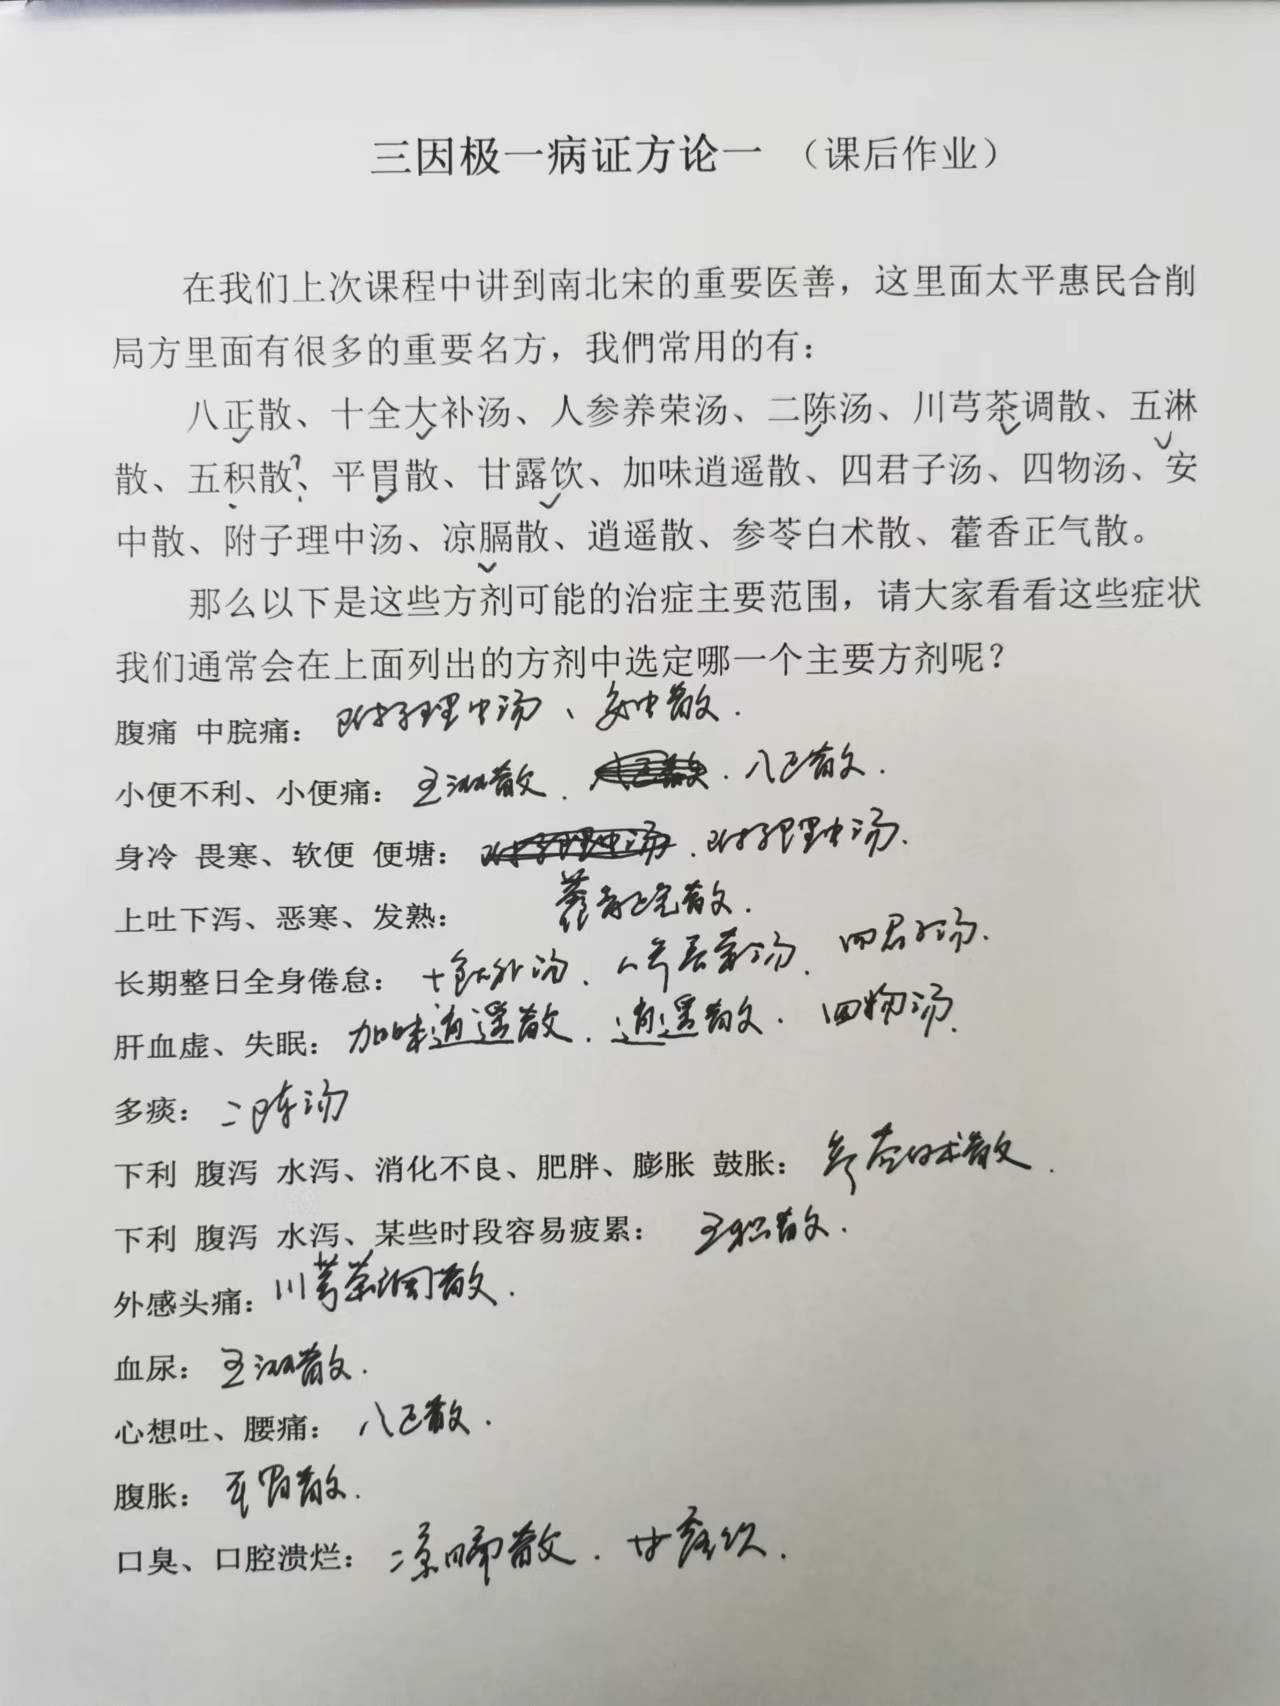 三因极一病证方论一 （课后作业）
在我们上次课程中讲到南北宋的重要医善，这里面太平惠民合削
局方里面有很多的重要名方，我們常用的有：
八正散、十全大补汤、人参养荣汤、二陈汤、川芎茶调散、五淋
散、五积散?、平胃散、甘露饮、加味逍遥散、四君子汤、四物汤、安
中散、附子理中汤、凉膈散、逍遥散、参苓白术散、藿香正气散。
那么以下是这些方剂可能的治症主要范围，请大家看看这些症状
我们通常会在上面列出的方剂中选定哪一个主要方剂呢？
腹痛 中脘痛： 附子理中汤、安中散.
小便不利、小便痛： 五淋散. 八正散.
身冷 畏寒、软便 便塘： 附子理中汤. 附子理中汤.
上吐下泻、恶寒、发熟： 藿香正气散.
长期整日全身倦怠： 十全大补汤. 人参养荣汤. 四君子汤.
肝血虚、失眠： 加味逍遥散. 逍遥散. 四物汤.
多痰： 二陈汤
下利 腹泻 水泻、消化不良、肥胖、膨胀 鼓胀： 参苓白术散.
下利 腹泻 水泻、某些时段容易疲累： 五积散.
外感头痛： 川芎茶调散.
血尿： 五淋散.
心想吐、腰痛： 八正散.
腹胀： 平胃散.
口臭、口腔溃烂： 凉膈散. 甘露饮.